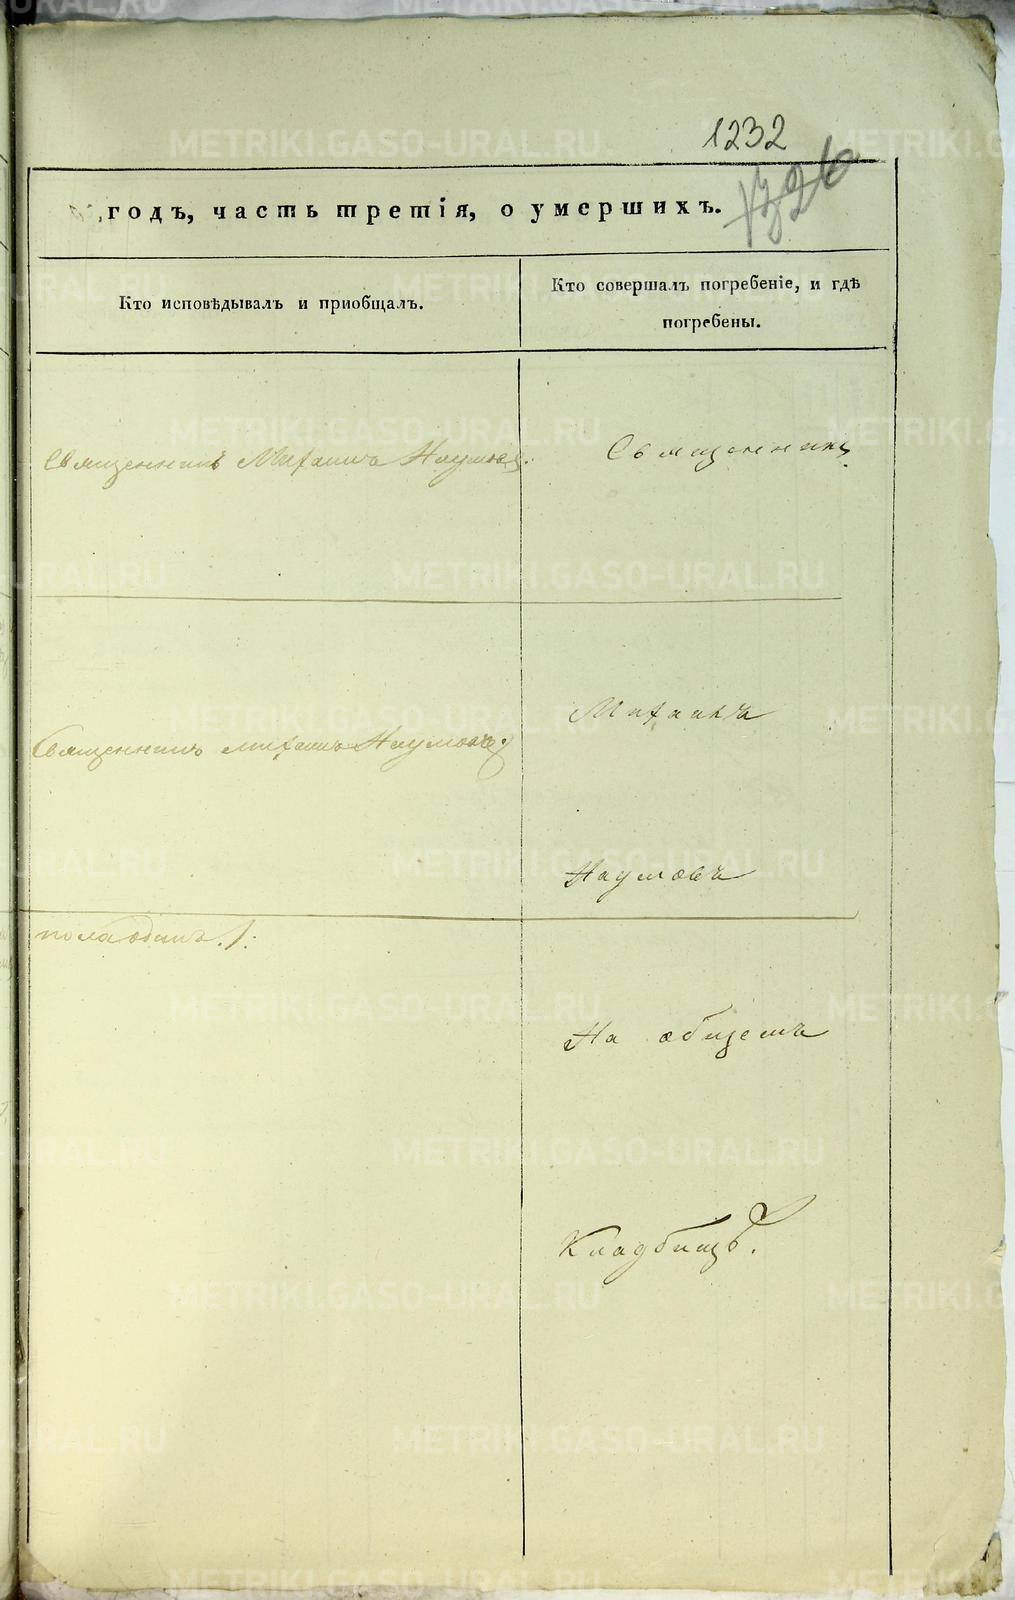 1232
годъ, часть третія, о умершихъ.
Кто исповѣдывалъ и пріобщалъ.
Кто совершалъ погребеніе, и гдѣ
погребены.
Священникъ Михаилъ Наумовъ.
Священникъ
Священникъ Михаилъ Наумовъ
Михаилъ
Наумовъ
пола одинъ. 1:
На общемъ
Кладбищѣ.
METRIKI.GASO-URAL.RU